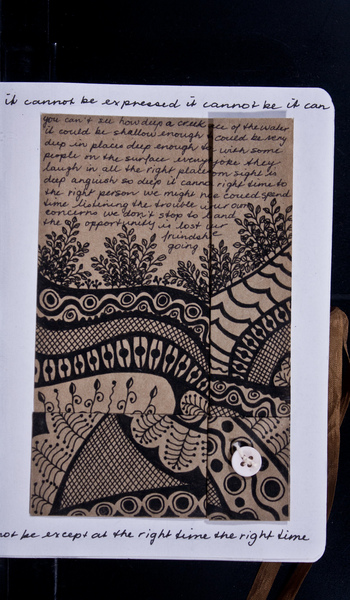 it cannot be expressed it cannot be it can
you can't see how deep a creek ace of the water
it could be shallow enough could be very
deep in places deep enough to with some
people on the surface every joke they
laugh in all the right places on sight is
deep anguish so deep it cannot right time to
the right person we might not could spend
time listening the trouble is our own
concerns we don't stop to hand
the opportunity is lost our
friendship
going
not be except at the right time the right time